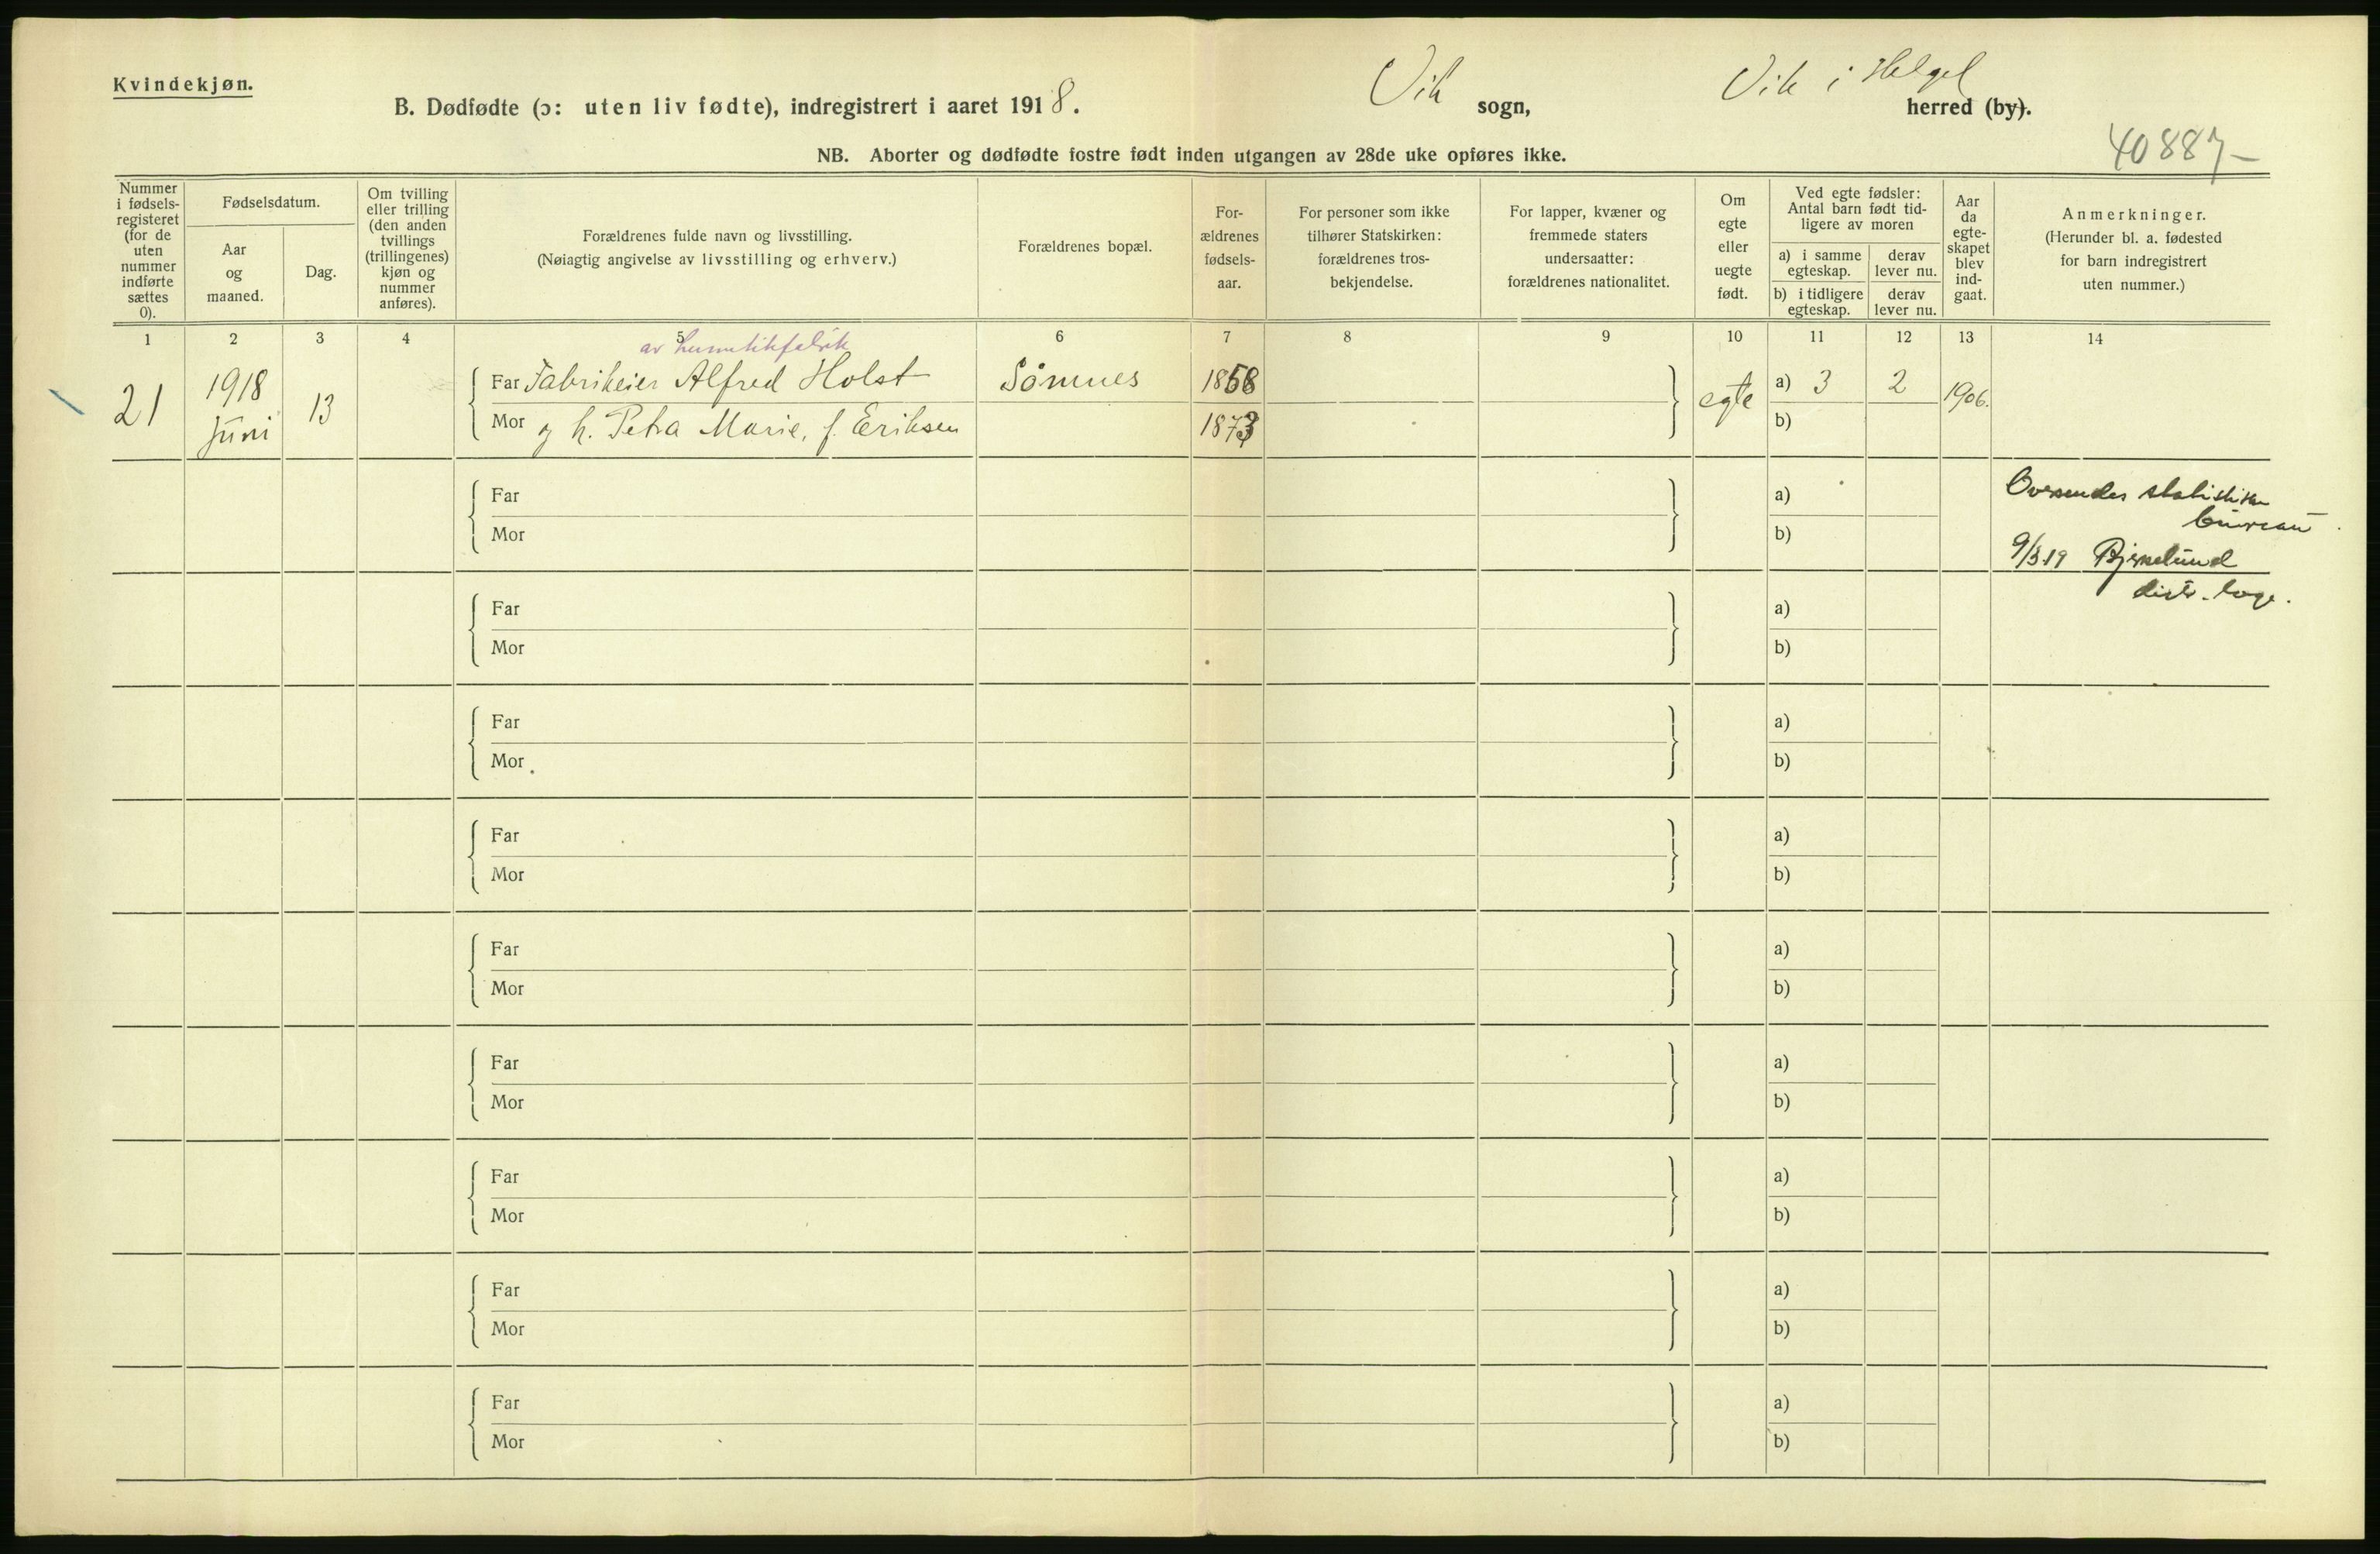 Kvindekjøn.
B. Dødfødte (ɔ: uten liv fødte), indregistrert i aaret 1918.
Vik sogn,
Vik i Helgel herred (by).
NB. Aborter og dødfødte fostre født inden utgangen av 28de uke opføres ikke.
40887–
Nummer
i fødsels-
registeret
(for de
uten
nummer
indførte
sættes
0).
Fødselsdatum.
Aar
og
maaned.
Dag.
Om tvilling
eller trilling
(den anden
tvillings
(trillingenes)
kjøn og
nummer
anføres).
Forældrenes fulde navn og livsstilling.
(Nøiagtig angivelse av livsstilling og erhverv.)
Forældrenes bopæl.
For-
ældrenes
fødsels-
aar.
For personer som ikke
tilhører Statskirken:
forældrenes tros-
bekjendelse.
For lapper, kvæner og
fremmede staters
undersaatter:
forældrenes nationalitet.
Om
egte
eller
uegte
født.
Ved egte fødsler:
Antal barn født tid-
ligere av moren
a) i samme
egteskap.
derav
lever nu.
b) i tidligere
egteskap.
derav
lever nu.
Aar
da
egte-
skapet
blev
ind-
gaat.
Anmerkninger.
(Herunder bl. a. fødested
for barn indregistrert
uten nummer.)
1 2 3 4 5 6 7 8 9 10 11 12 13 14
av hermetikfabrik
21 1918 juni 13
Far Fabrikeier Alfred Holst Sömnes 1868 egte a) 3 2 1906.
Mor og h. Petra Marie, f. Eriksen 1873 b)
Far a)
Mor b)
Oversendes statistiske
bureau
9/3 19
distr. læge.
Far a)
Mor b)
Far a)
Mor b)
Far a)
Mor b)
Far a)
Mor b)
Far a)
Mor b)
Far a)
Mor b)
Far a)
Mor b)
Far a)
Mor b)